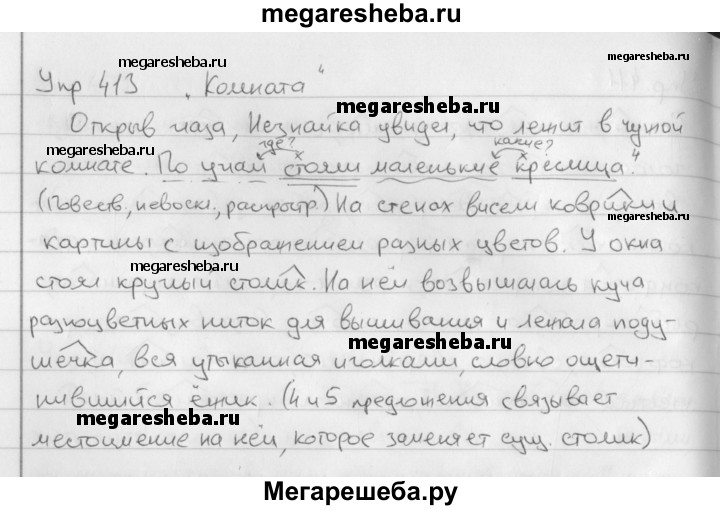 megaresheba.ru
megaresheba.ru
Упр 413 „Комната“
megaresheba.ru
megaresheba.ru
Открыв глаза, Незнайка увидел, что лежит в чужой
где? какие?
комнате. По углам стояли маленькие креслица.“
(Повеств, невоскл, распростр) На стенах висели коврики и
megaresheba.ru
картины с изображением разных цветов. У окна
megaresheba.ru
стоял круглый столик. На нём возвышалась куча
megaresheba.ru
разноцветных ниток для вышивания и лежала поду-
шечка, вся утыканная иголками, словно ощети-
megaresheba.ru
нившийся ёжик. (4 и 5 предложения связывает
megaresheba.ru
местоимение на нём, которое заменяет сущ. столик)
Мегарешеба.ру